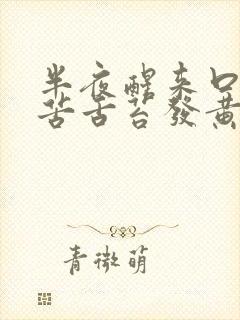 半夜醒来口
苦舌苔發黄
青微萌